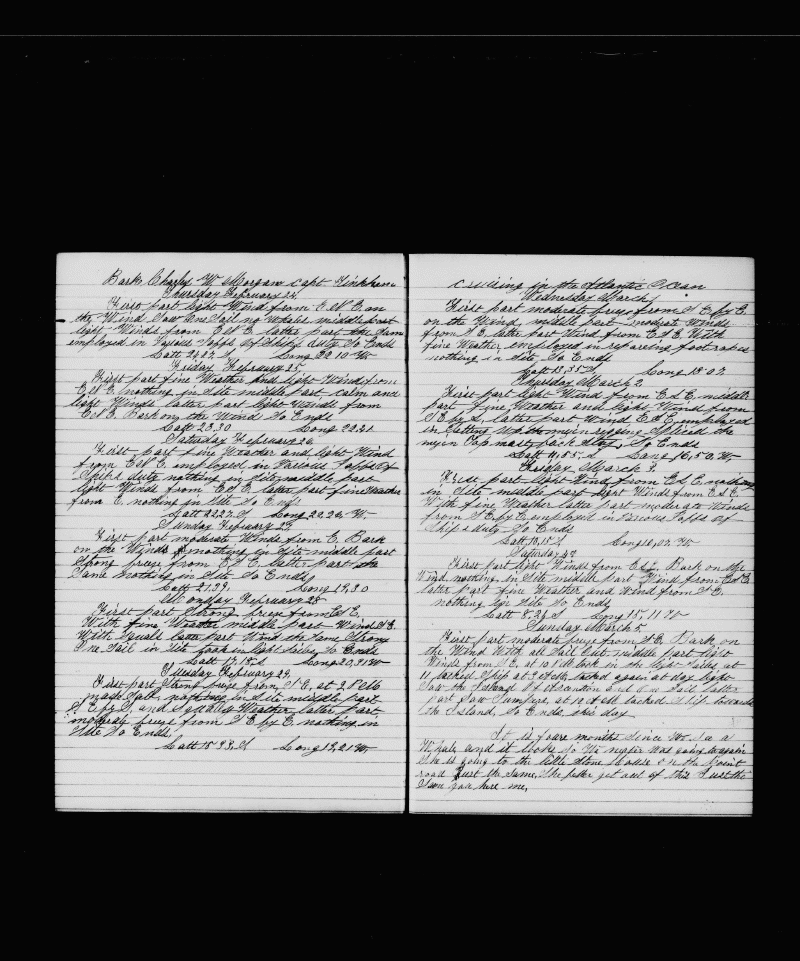 Bark Charls W Morgan Capt Tinkham
Thursday February 24
First part light Wind from E N E on
the Wind Saw one Sail no whales middle part
light Winds from E N E latter part the Same
employed in Various Jobbs Of Ships duty So Ends
Latt 22.27 S Long 22 10 W
Friday February 25
First part fine Weather and light Wind from
E N E nothing in Site middle part calm and
light Winds latter part light Winds from
E N E Bark on the Wind So Ends
Latt 23.30 Long 22.21
Saturday February 26
First part fine Weather and light Wind
from E N E employed in Various Jobbs of
Ships duty nothing in Site middle part
light Winds from E N E latter part fine Weather
from E nothing in Site So Ends
Latt 22.27 S Long 22,20, W
Sunday February 27
First part moderate Winds from E. Bark
on the Winds nothing in Site middle part
Strong breeze from E S E latter part the
Same nothing in Site So Ends
Latt 21.29 Long 19,30
Monday February 28
First part Strong breeze from E S E
With fine Weather middle part Wind S E
With Squals latter part Wind the Same Strong
One Sail in Sit took in light Sailes So Ends
Latt 17,18, S Long 20,21 W
Tuesday February 29
First part Strong breeze from S E, at 2 P Mb
made Sail, nothing in Site middle part
S E by S, and Squally Weather latter part
moderate breeze from S E by E nothing in
Site So Ends
Latt 15 33, S Long 19,21 W,
Cruising in the Atlantic Ocean
Wednesday March 1
First part moderate breeze from S E by E.
on the Wind, middle part moderate Winds
from S E, latter part Wind from E S E With
fine Weather employed in repairing foot ropes
nothing in Site So Ends
Latt 13,35 S Long 18 02
Thursday March 2
First part light Wind from E S E middle
part fine Weather and light Wind from
S E by E, latter part Wind E S E employed
in Setting up the main rigging Spliced the
main Top mast back Stay, So Ends
Latt 11,55, S Long 16,50, W
Friday March 3
First part light Wind from E S E nothing
in Site middle part light Winds from E S E
With fine Weather latter part moderate Winds
from S E by E employed in Various Jobbs of
Ships duty So Ends
Latt 10,15 S Long 16,02 W
Saturday 4th
First part light Winds from E S E Bark on the
Wind, nothing in Site middle part Wind from E S E
latter part fine Weather and Wind from S E
nothing in Site So Ends
Latt 8,26 S Long 15, 11 W
Sunday March 5
First part moderate breeze from S E, Bark on
the Wind With all Sail Out middle part light
Winds from S E, at 10 P M took in the light Sailes, at
11 tacked Ship at 3 tacked again at day light
Saw the Island Of and One Sail latter
part Saw at 10 A M tacked Ship towards
the Island, So Ends this day
It is foure months Since We See a
Whale, and it looks So We never Was going to again
She is going to the little Stone House on the point
road Just the Same, the get out of this Just the
Same you here me,